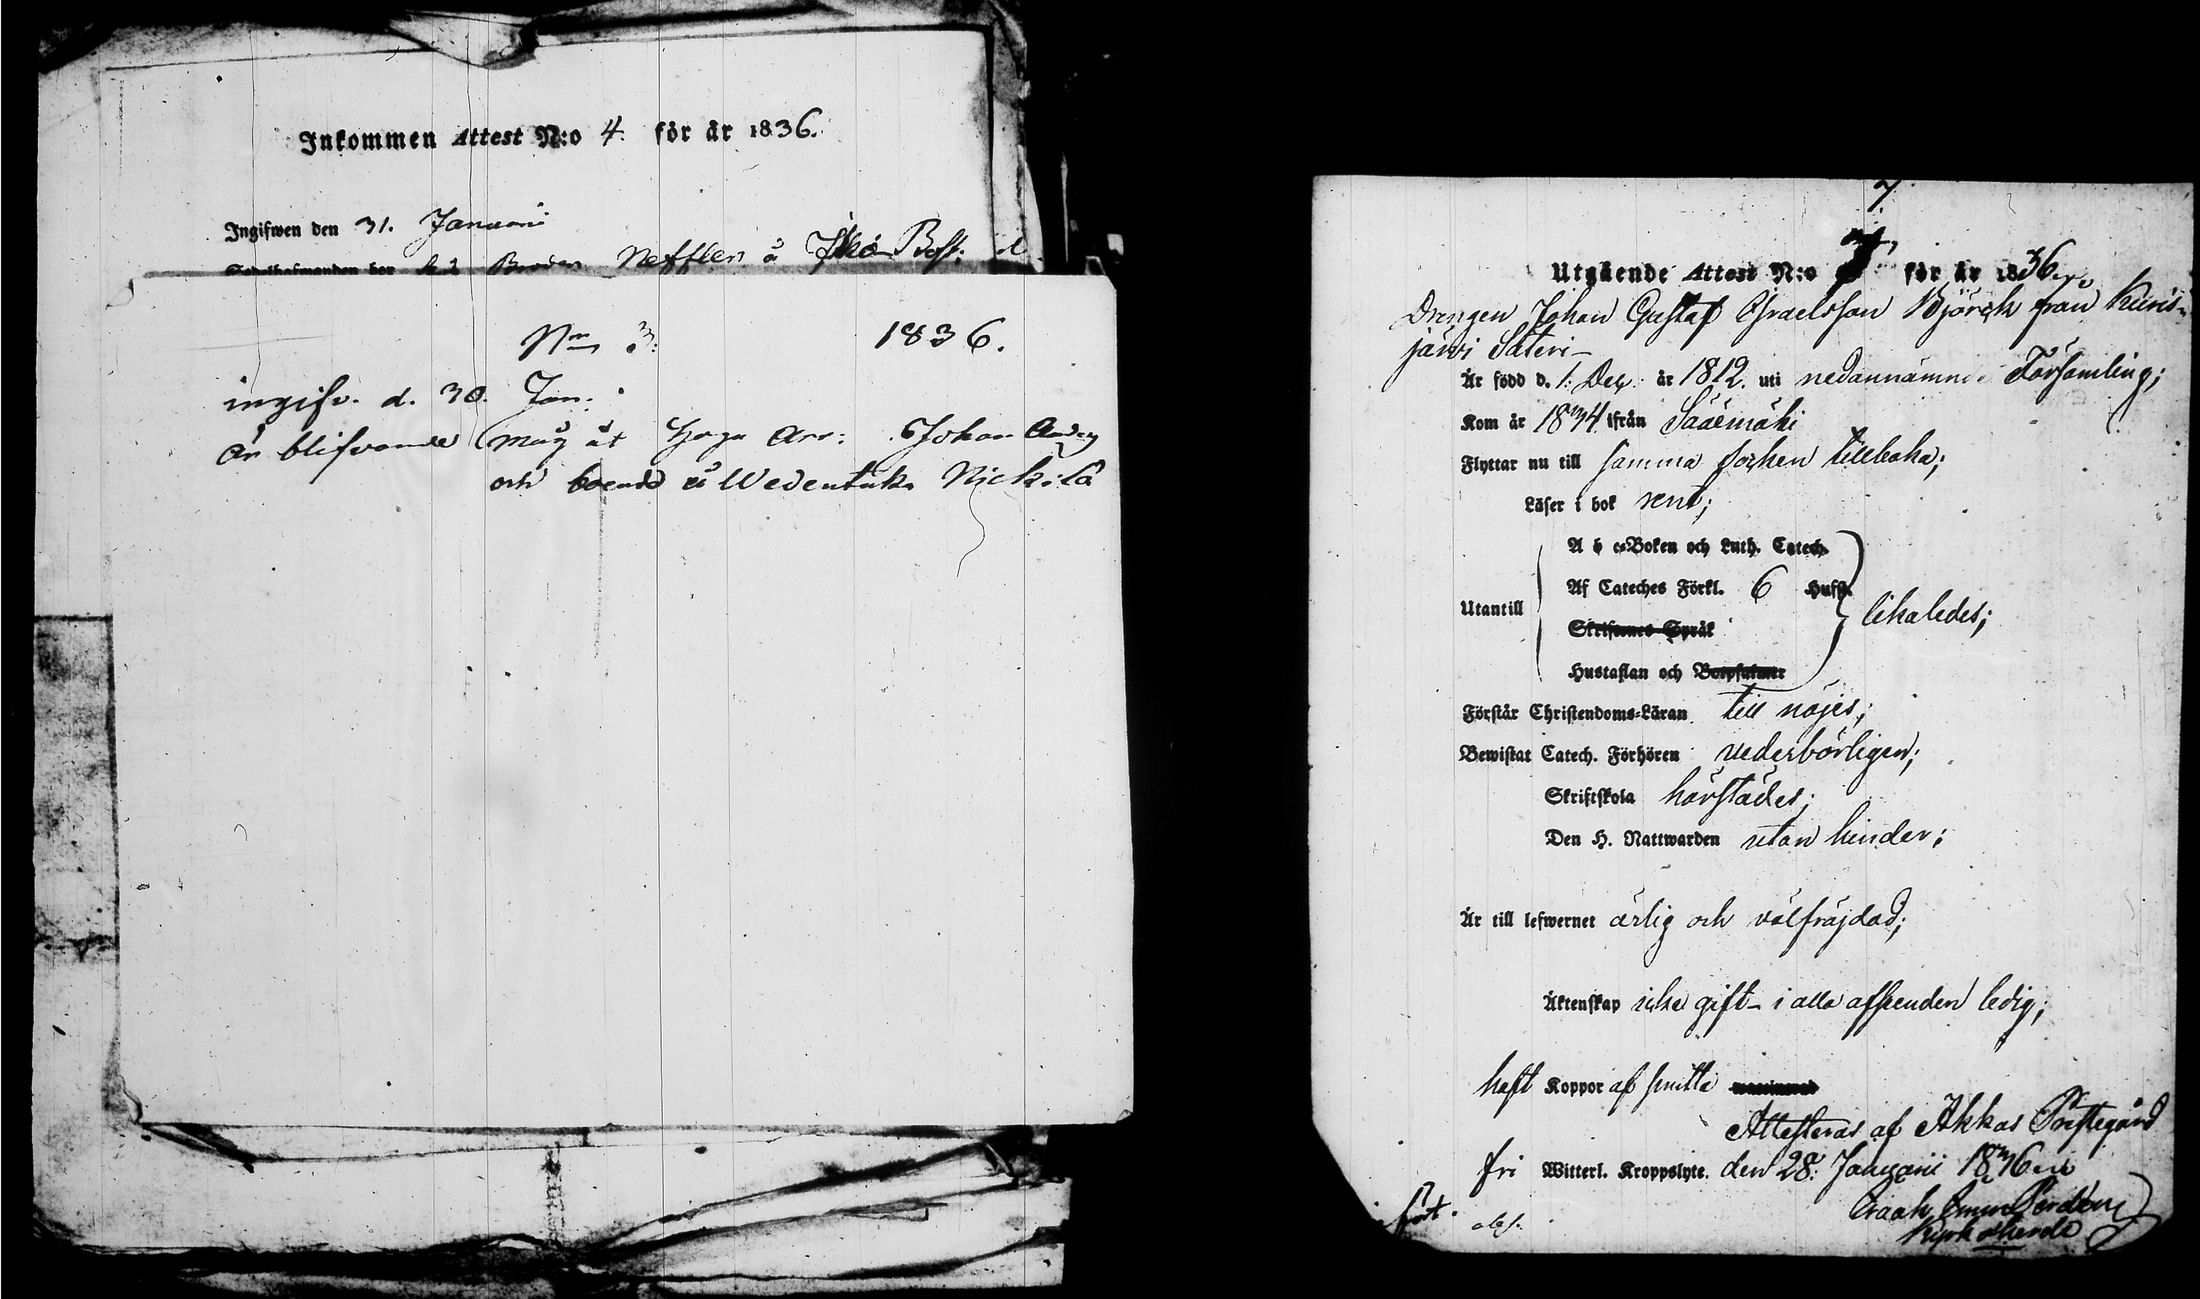 Inkommen Attest N:o 4. för år 1836.
Ingifwen den 31. Januari
Nr 3. 1836.
ingifv. d. 30. Jan.
Är blifvande måg åt Arr: Johan
och boende å Wedentaka Nickilä
7.
Utgående Attest N:o för år 1836.
Drengen Johan Gustaf Israelsson Björck från Kiiris-
järvi Säteri
Är född d. 1. Dec. år 1812. uti nedannämnde Församling;
Kom år 1834 ifrån Sääxmäki
Flyttar nu till samma Sochen tillbaka;
Läser i bok rent;
A b c-Boken och Luth. Catech.
Af Cateches Förkl. 6 Hufst.
Utantill likaledes;
Skrifternes Språk
Hustaflan och Botpsalmer
Förstår Christendoms-Läran till nöjes;
Bewistat Catech. Förhören vederbörligen;
Skriftskola härstädes;
Den H. Nattwarden utan hinder;
Är till lefwernet ärlig och välfräjdad;
Äktenskap icke gift - i alla afseenden ledig;
haft Koppor af smitta vaccinerad
Attesteras af Akkas Prestegård
fri Witterl. Kroppslyte. den 28. Januarii 1836
Kyrkoherde